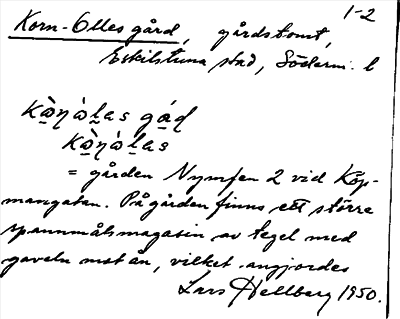 1-2
Korn-Olles gård, gårdstomt,
Eskilstuna stad, Söderm. l
kɑ̀ṇɑ̀ḷas gáḍ
kɑ̀ṇɑ̀ḷas
= gården Nymfen 2 vid Köp-
mangatan. På gården finns ett större
spannmålsmagasin av tegel med
gaveln mot ån, vilket angjordes
Lars Hellberg 1950.